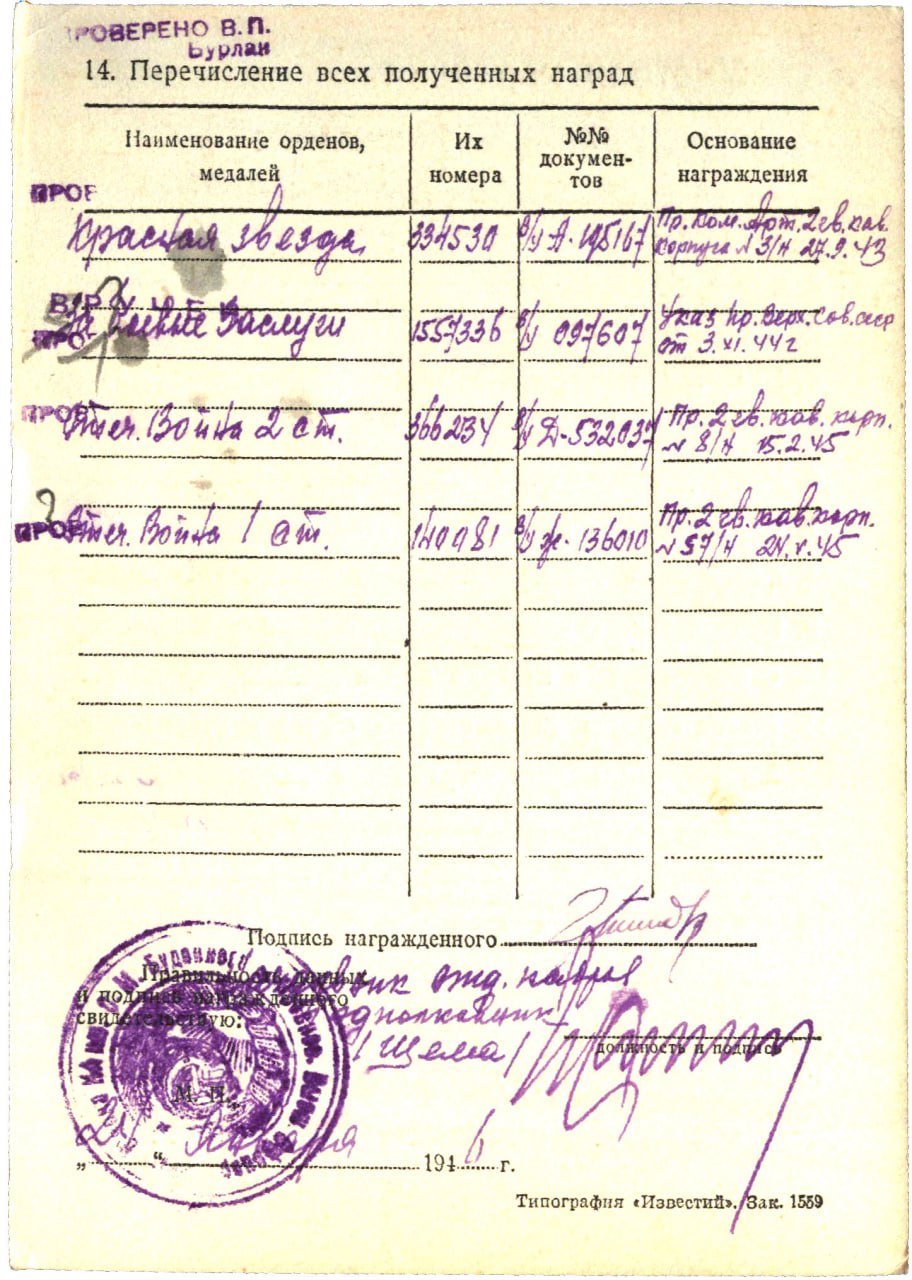 ПРОВЕРЕНО В.П.
Бурлан
14. Перечисление всех полученных наград
Наименование орденов, медалей
Их номера
№№ документов
Основание награждения
ПРОВ
Красная звезда 334530 В/у А-195167 Пр. Ком. Арт. 2 гв. кав. корпуса N 3/н 27.9.43
За боевые Заслуги 1557336 В/у 097607 Указ Пр. Верх. Сов. ссср от 3.XI.44 г
ПРОВ
ПРОВ
Отеч. Война 2 ст. 366234 В/у Д-532037 Пр. 2 гв. кав. корп. N 8/н 15.2.45
ПРОВ
Отеч. Война 1 ст. 140081 В/у Ж-136010 Пр. 2 гв. кав. корп. N 57/н 24.V.45
Подпись награжденного
Правильность данных
и подписи награжденного
свидетельствую:
отд. кадров
подполковник
/Щема/
должность и подпись
М. П.
„24“ Января 1946 г.
Типография «Известий». Зак. 1559